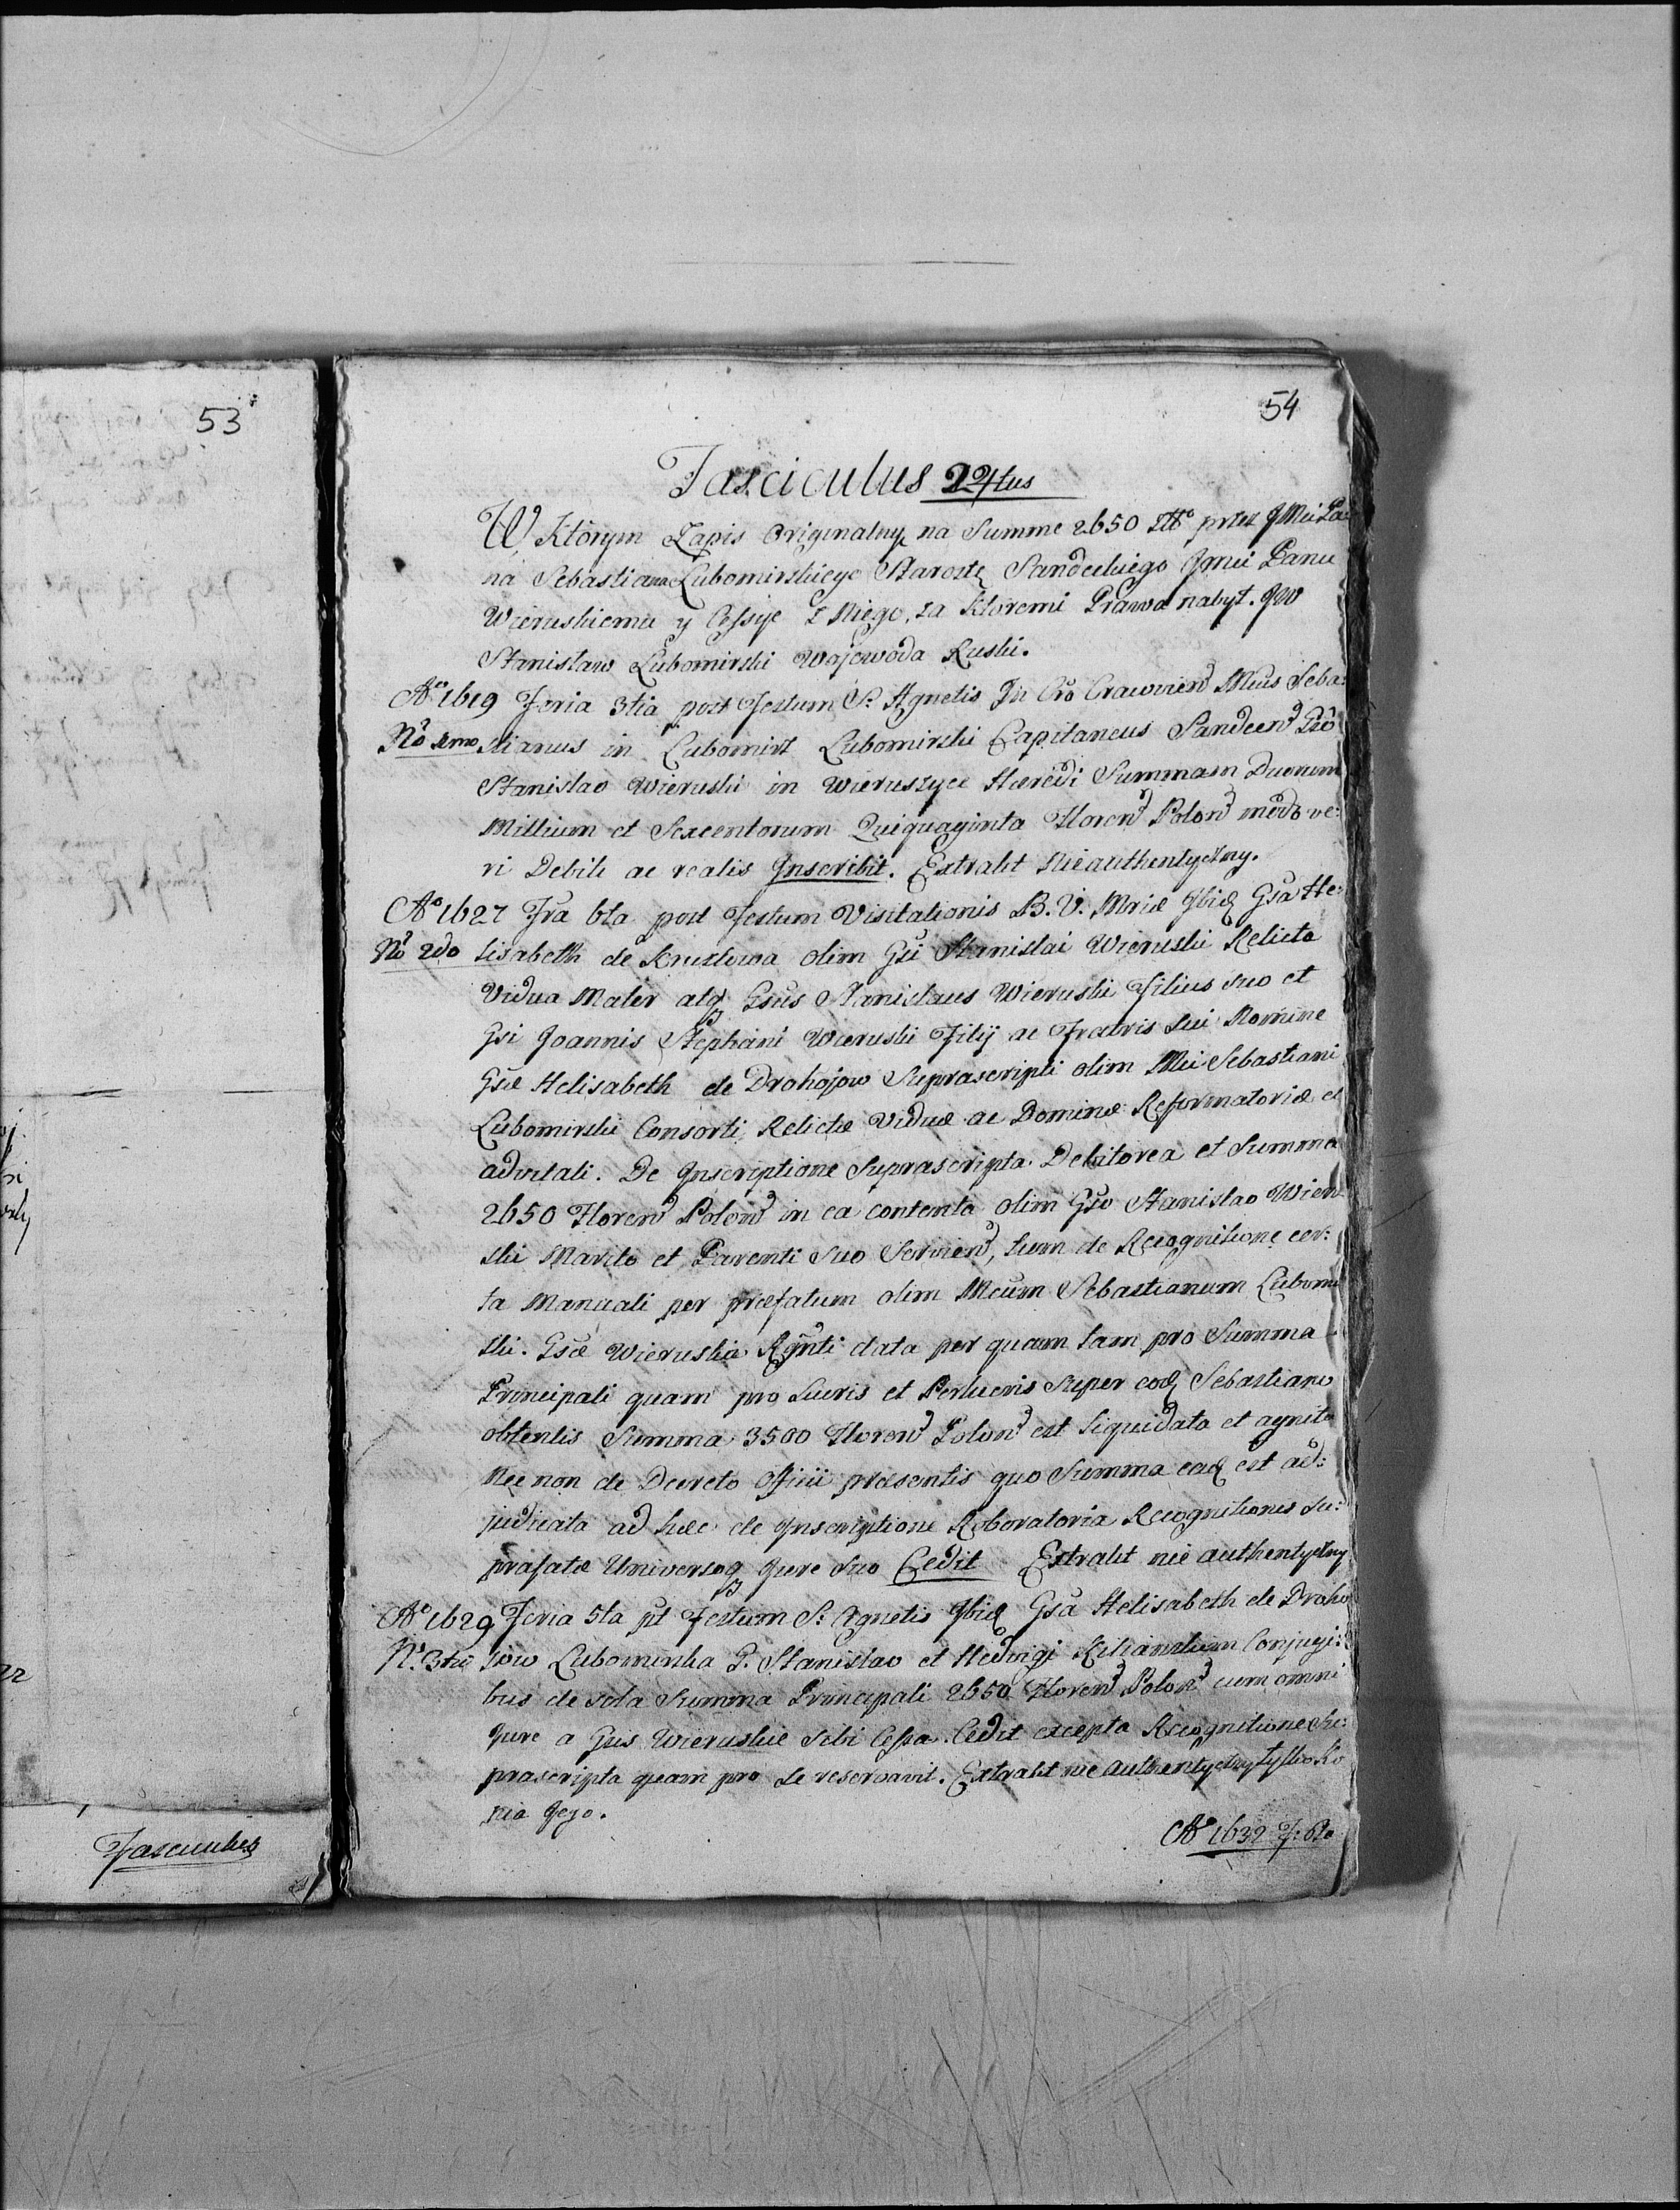 53
54
Fasciculus 22tus
W Ktörym Zapis Originalny na Summe 2650 przez JMci Pa:
na Sebastiana Lubomirskiego Staroste Sandeckiego Jmci Panu
Wieruskiemu y Cessye z Niego, za Ktoremi Prawa nabyt. JW
Stanisław Lubomirski Wojewoda Ruski.
Ao 1619 Feria 3tia post Festum S. Agnetis In Cro Cracovien Mcus Seba:
No 1mo stianus in Lubomirz Lubomirski Capitaneus Sandecen Gso
Stanislao Wieruski in Wieruszyce Hæredi Summam Duorum
Millium et Sexcentorum Quiquaginta Floren Polon modo ve:
ri Debiti ac realis Inscribit. Extrakt nie authentyczny.
Ao 1627 Fra 6ta post Festum Visitationis B. V. Mriæ Ibid Gsa He:
No 2do lisabeth de Kruzlowa olim Gsi Stanislai Wieruski Relicta
Vidua Mater atq Gsus Stanislaus Wieruski Filius suo et
Gsi Joannis Stephani Wieruski Filij ac Fratris sui Nomine
Gsæ Helisabeth de Drohojow Suprascripti olim Mci Sebastiani
Lubomirski Consorti Relictæ Viduæ ac Dominæ Reformatoriæ et
advitali. De Inscriptione Suprascripta Debitorea et Summa
2650 Floren Polon in ea contenta olim Gso Stanislao Wieru
ski Marito et Parenti suo Servien, tum de Recognitione cer:
ta Manuali per præfatum olim Mcum Sebastianum Lubomi
ski. Gsæ Wieruska Rgnti data per quam tam pro Summa
Principali quam pro Lucris et Perlucris super eod Sebastiano
obtentis Summa 3500 Floren Polon est liquidata et agnita
Nec non de Decreto Officii præsentis quo Summa ead est ad:
judicata ad hæc de Inscriptione Roboratoria Recognitionis su:
præfatæ Universoq Jure suo Cedit Extrakt nie authentyczny
Ao 1629 Feria 5ta pt Festum S. Agnetis Ibid Gsa Helisabeth de Droho
No 3tio jow Lubomirska G. Stanislao et Hedvigi Conjugi:
bus de sola Summa Principali 2650 Floren Polon cum omni
Jure a Gsis Wieruskie sibi Cesso. Cedit excepta Recognitione Su:
prascripta quam pro se reservavit. Extrakt nie authentyczny tylko Ko
pia Jego.
Ao 1632 F:
Fasciculus